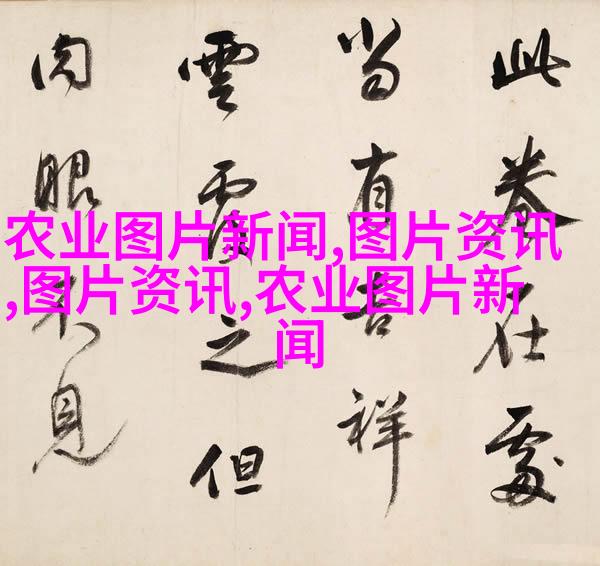 此卷在處
当有吉祥
雲覆之但
肉眼不見
农业图片新闻,图片资讯
,图片资讯,农业图片新
闻